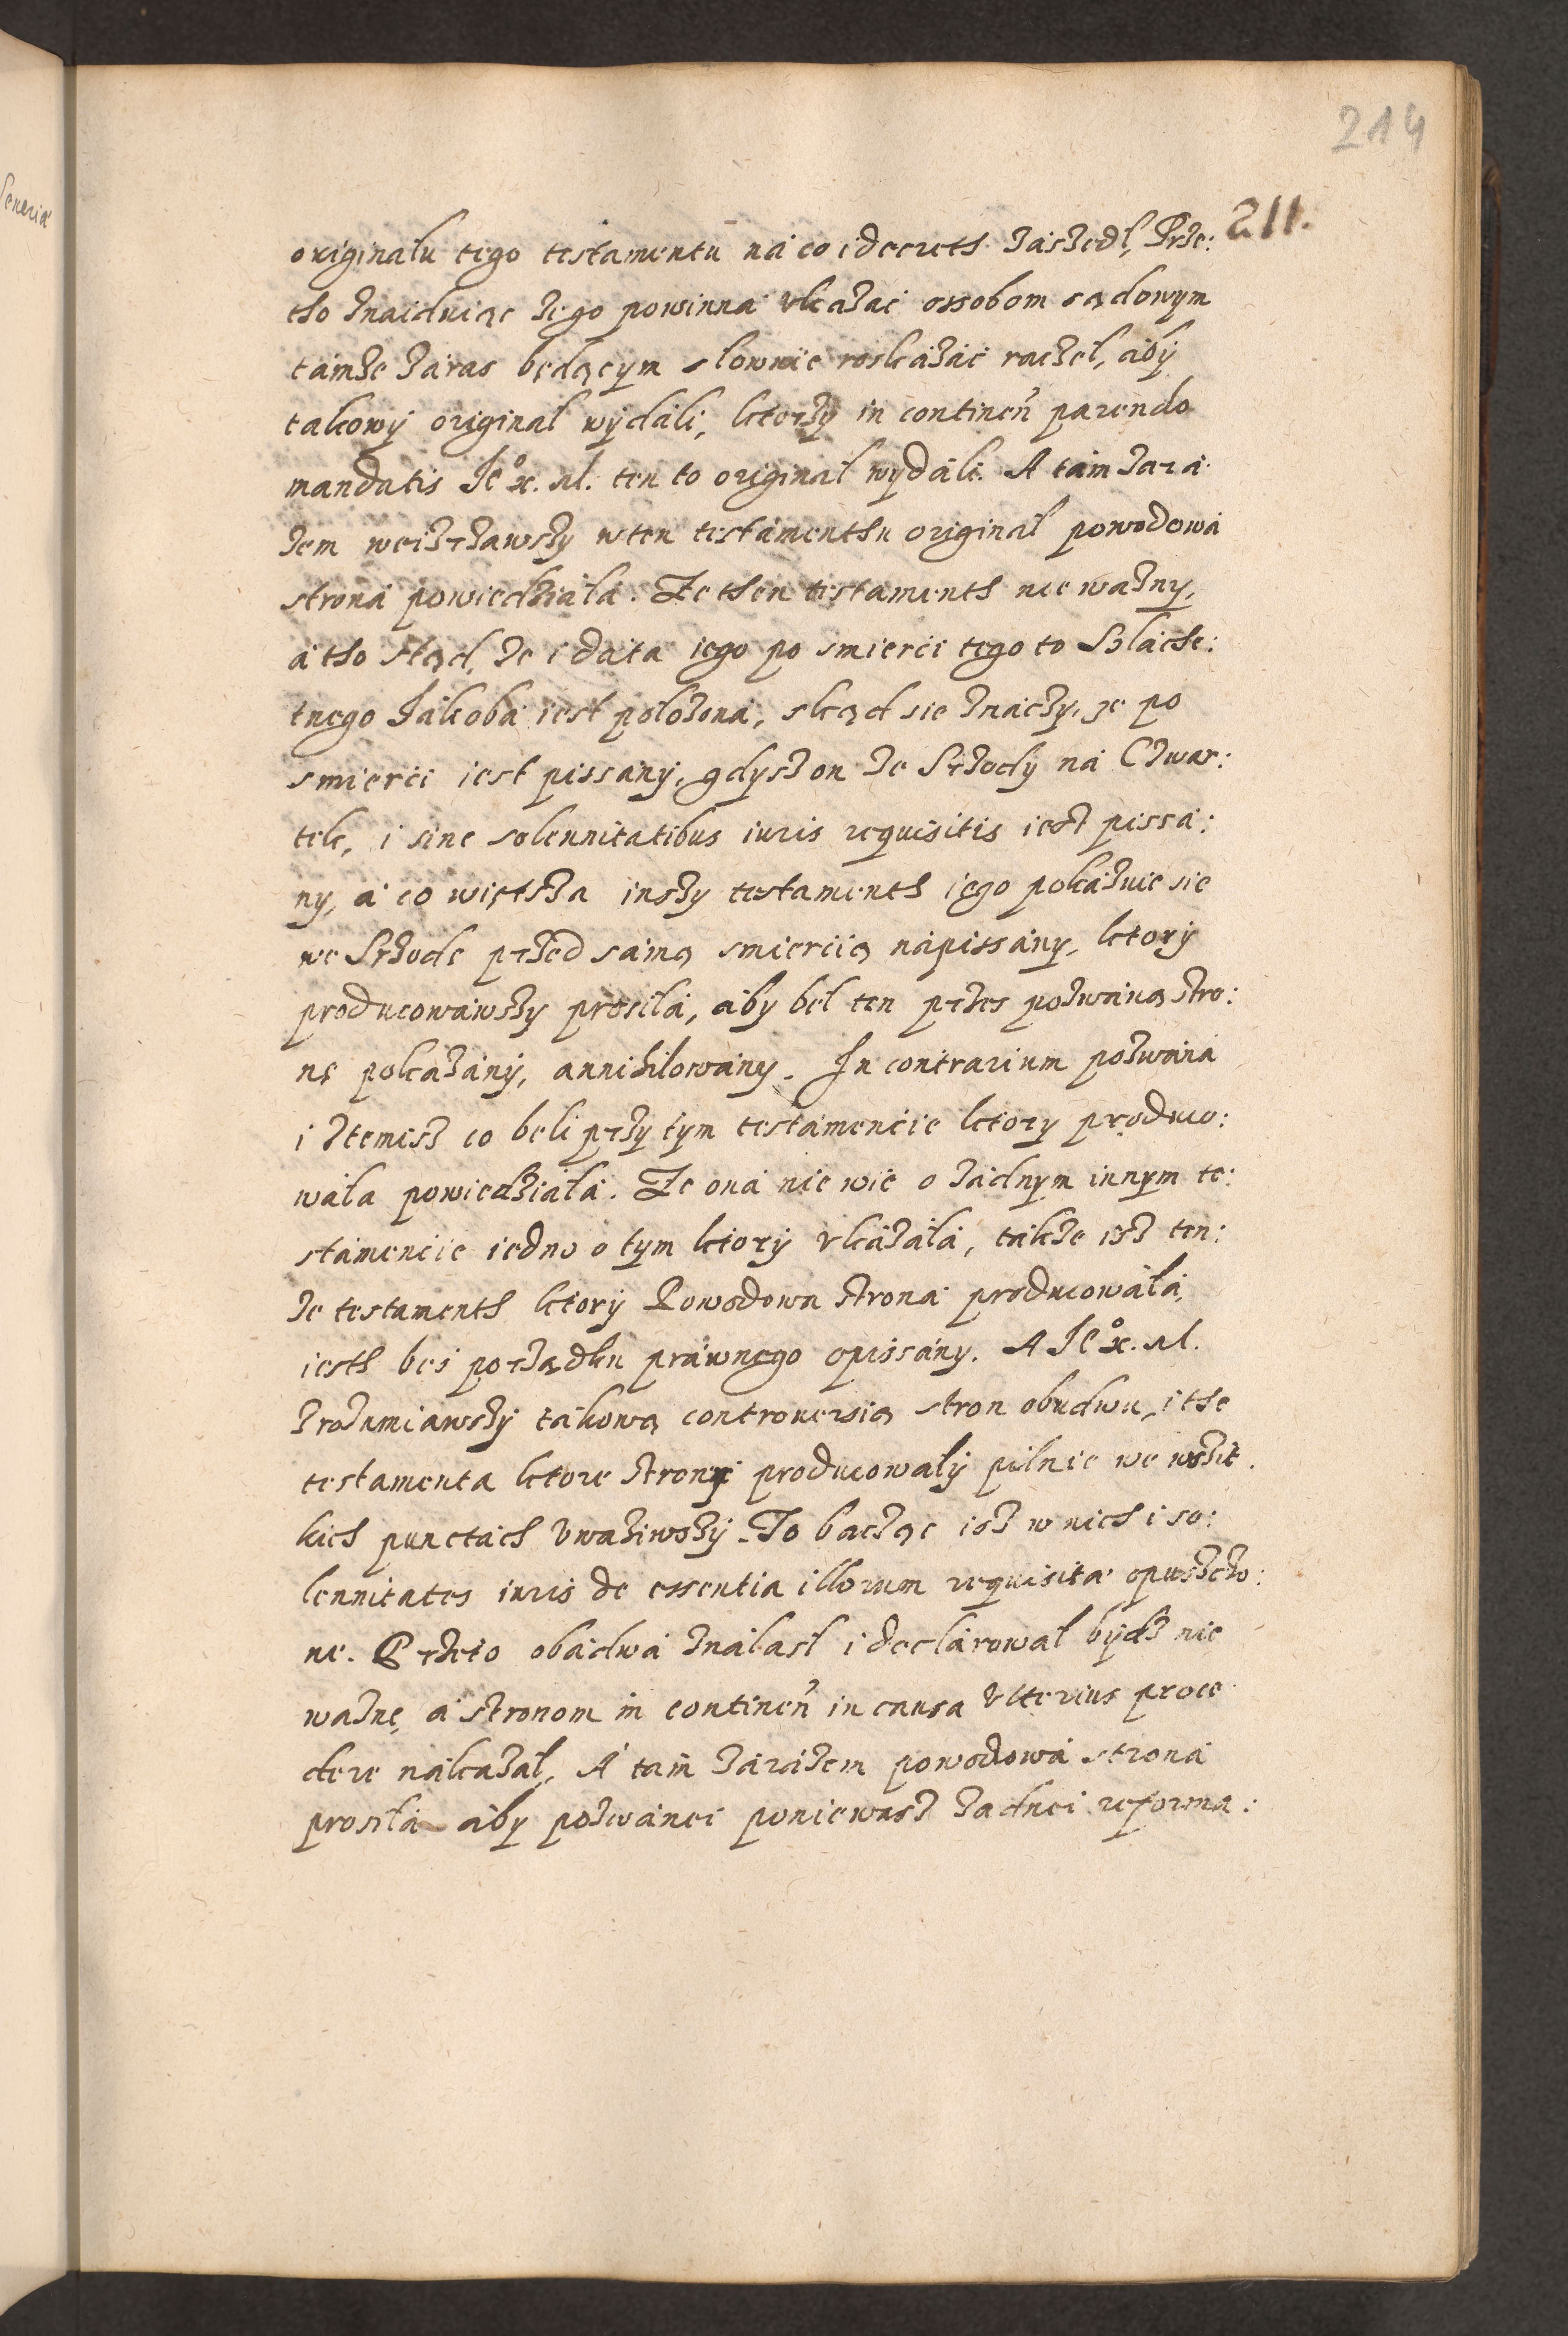 214
211.
originalu tego testamentu ná co i decreth zaszedl, Prze:
tho znaiduiąc że go powinna vkazać ossobom sądowym
támże záras będącym słownie roskázáć raczeł, áby
takowy original wydáli, ktorzy in continen̄ parendo
mandatis Je° x. M. ten to original wydáli. A tám zara
zem weizrzawszy w ten testamenthu original powodowa
stroná powiedziałá. Że then testamenth nie ważny,
á tho stąd, że i data iego po smierci tego to Szláche:
tnego Jákobá iest położona, skąd sie znáczy, że po
smierci iest pissány, gdysz on ze Srzody ná Czwar:
tek, i sine solennitatibus iuris requisitis iest pissá:
ny, á co więtsza inszy testamenth iego pokázuie sie
we Srzode przed sámą smiercią nápissány, ktory
producowáwszy prosiłá, áby beł ten przes pozwáną stro:
nę pokázány, annihilowány. In contrarium pozwána
i ztemisz co beli przy tym testámencie ktory produco:
wáła powiedziáłá. Że oná nie wie o żádnym innym te:
stámencie iedno o tym ktory vkázáłá, tákże isz ten:
że testamenth ktory Powodowa stroná producowáłá,
iesth bes porządku práwnego opissány. A Je° x. M.
zrozumiawszy tákową controuersią stron obudwu, i the
testamenta ktore strony producowáły pilnie we wszit
kich punctách vwáżiwszy. To bacząc isz w nich i so:
lennitates iuris de essentia illorum requisitæ opuszczo:
ne. Przeto obádwáználasł i declárowáł bydz nie
ważne, á stronom in continen̄ in causa vlterius proce
dere nákazał, A tám zárázem powodowá stroná
prosiłá áby pozwánei poniewasz żadnei reforma: